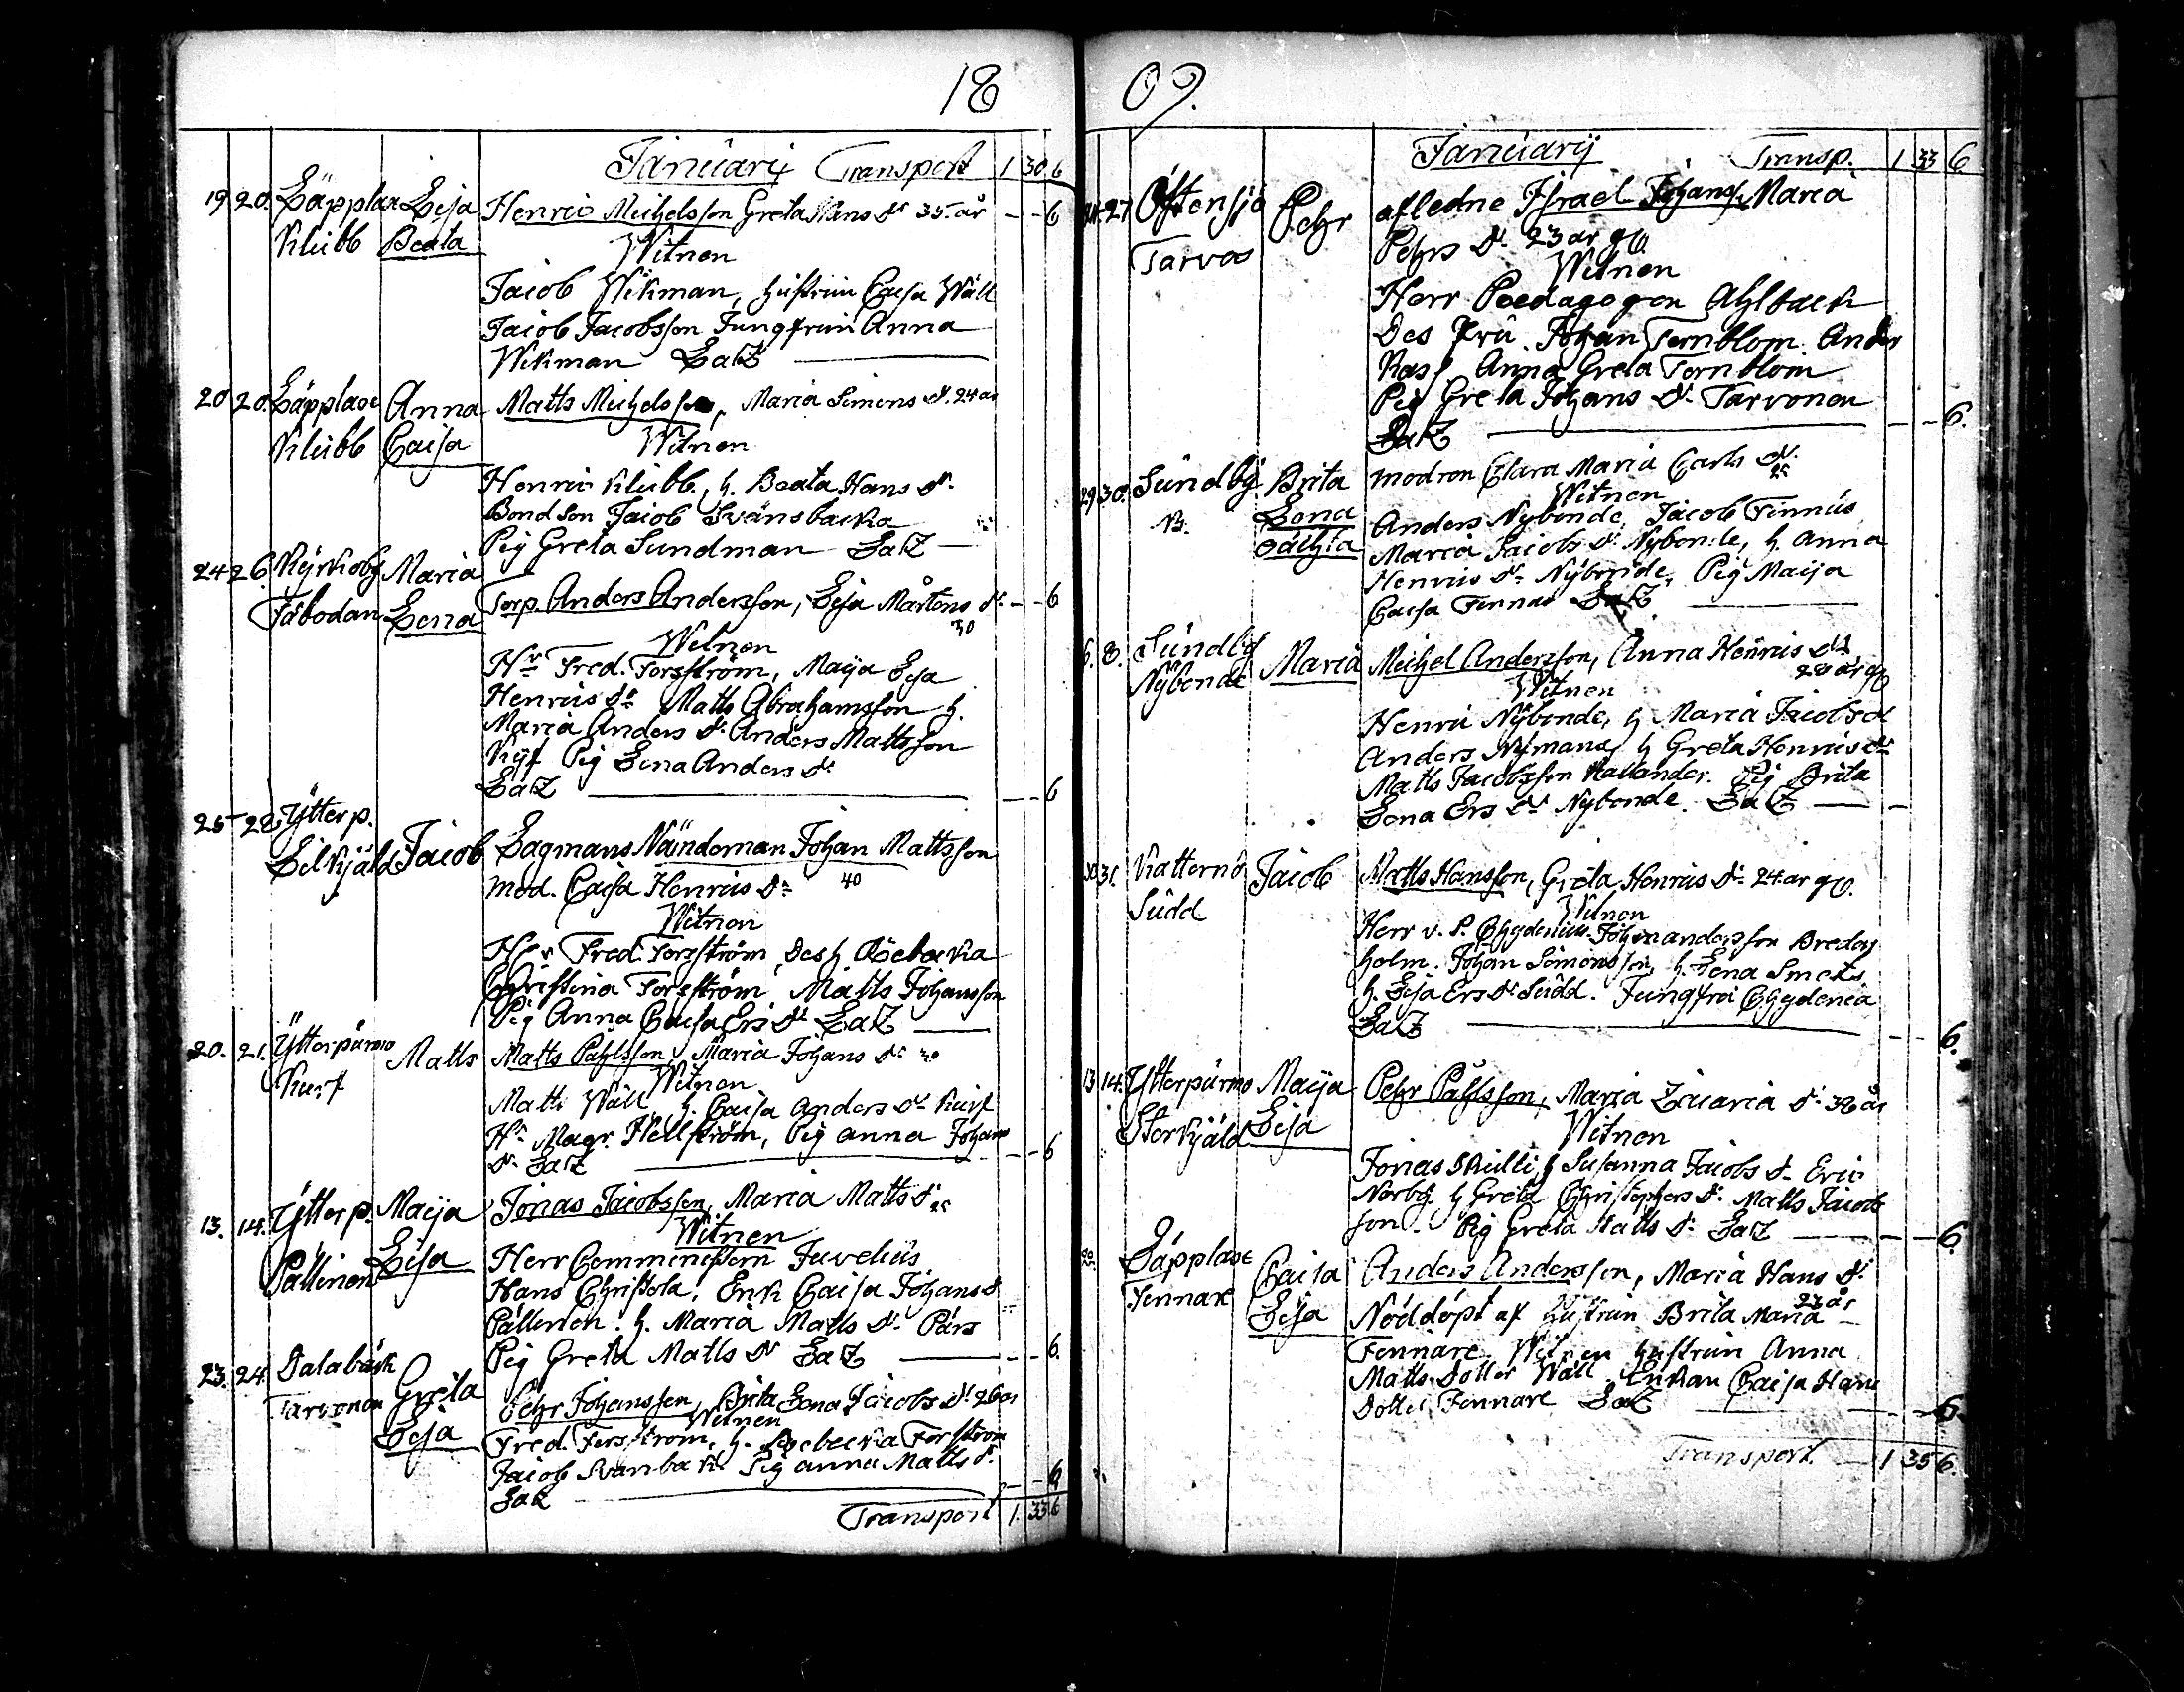 18
Januarij Transport 1 30 6
19 20. Lepplax Lisa Henric Michelsson Greta Hans dr 35. år - - 6
Klubb Beata Witnen
Jacob Wikman, hustrun Caisa Wäll
Jacob Jacobsson Jungfrun Anna
Wikman LaZ
20 20. Lepplax Anna Matts Michelsson, Maria Simons dr. 24 år
Klubb Caisa Witnen
Henric Klubb, h. Beata Hans dr.
Bondson Jacob Svänsbacka
Pig Greta Sundman LaZ
24 26. Kyrkoby Maria Torp. Anders Andersson, Lisa Mårtens dr. - - 6
Fäbodan Lena 30
Witnen
Hr Fred. Forsström, Maija Lisa
Henrics dr Matts Abrahamsson h.
Maria Anders dr. Anders Mattsson
Pig Lena Anders dr
LaZ - - 6
25 28 Ytterp.
Lillkjäld Jacob Lagmans Nämdeman Johan Mattsson
mod. Caisa Henrics dr 40
Witnen
Herr Fred. Forsström, Des h Rebecka
Christina Forsström, Matts Johansson
Pig Anna Caisa Ers dr LaZ
20. 21. Ytterpurmo Matts Matts Påhlsson, Maria Johans dr 30
Witnen
Matts Wäll, h. Caisa Anders dr
Hr Magr. Hellström, Pig anna Johans
dr. LaZ - - 6
13. 14. Ytterp. Maija Jonas Jacobsson, Maria Matts dr
Witnen
Pällinen Lisa Herr Comministern Juvelius
Hans Christola, Enk Caisa Johans d
Pällinen. h. Maria Matts dr. Pärs
Pig Greta Matts dr LaZ - - 6.
23. 24. Dalabäck Greta Pehr Johansson, Brita Lena Jacobs dr. 26 år
Tarvonen Lisa Witnen
Fred. Forsström, h. Rebecka Forsström
Jacob Svanback. Pig anna Matts dr.
LaZ - - 6
Transport 1. 33 6
09.
Januarij Transp. 1 33 6
27 Östensjö Pehr afledne Israel Johanss. Maria
Tarvos Pehrs dr. 23 år
Witnen
Herr Pædagogen Ahlbäck
Des Fru. Johan Ternblom. Ander
Anna Greta Ternblom
Pig Greta Johans dr. Tarvonen
LaZ - - 6.
29 30. Sundby Brita modren Clara Maria Carls dr.
Lena Witnen
oächta Anders Nybonde, Jacob Finnus
Maria Jacobs dr Nybonde, h. Anna
Henrics dr Nybonde, Pig Maija
Caisa Finnas LaZ
6. 8. Sundby Maria Michel Andersson, Anna Henrics dr
Nybonde 28 år
Witnen
Henric Nybonde, h Maria Jacobs d
Anders Nymans h Greta Henrics dr
Matts Jacobsson Kallander. Pig Brita
Lena Ers dr Nybonde. LaZ
30 31. Katternö Jacob Matts Hansson, Greta Henrics dr 24. år
Sudd Witnen
Herr v. P. Chydenius. Johan andersson Bredar
holm. Johan Simonsson, h. Lena Smeds
h. Lisa Ers dr Sudd. Jungfru Chydenia
LaZ - - 6.
13 14. Ytterpurmo Maija Pehr Påhlsson, Maria Zacaria dr. 38 år
Storkjäld Lisa Witnen
Jonas Skulli h Susanna Jacobs d. Eric
Norbg. h Greta Christophers dr. Matts Jacobs
son. Pig Greta Matts dr LaZ - - 6.
Lepplax Caisa Anders Andersson, Maria Hans dr.
Fennare Lisa 27 år
Nöddöpt af hustrun Brita Maria
Fennare. Witnen hustrun Anna
Matts Dotter Wäll. Enkan Caisa Hans
Dotter Fennare LaZ - - 6.
Transport 1 35 6.